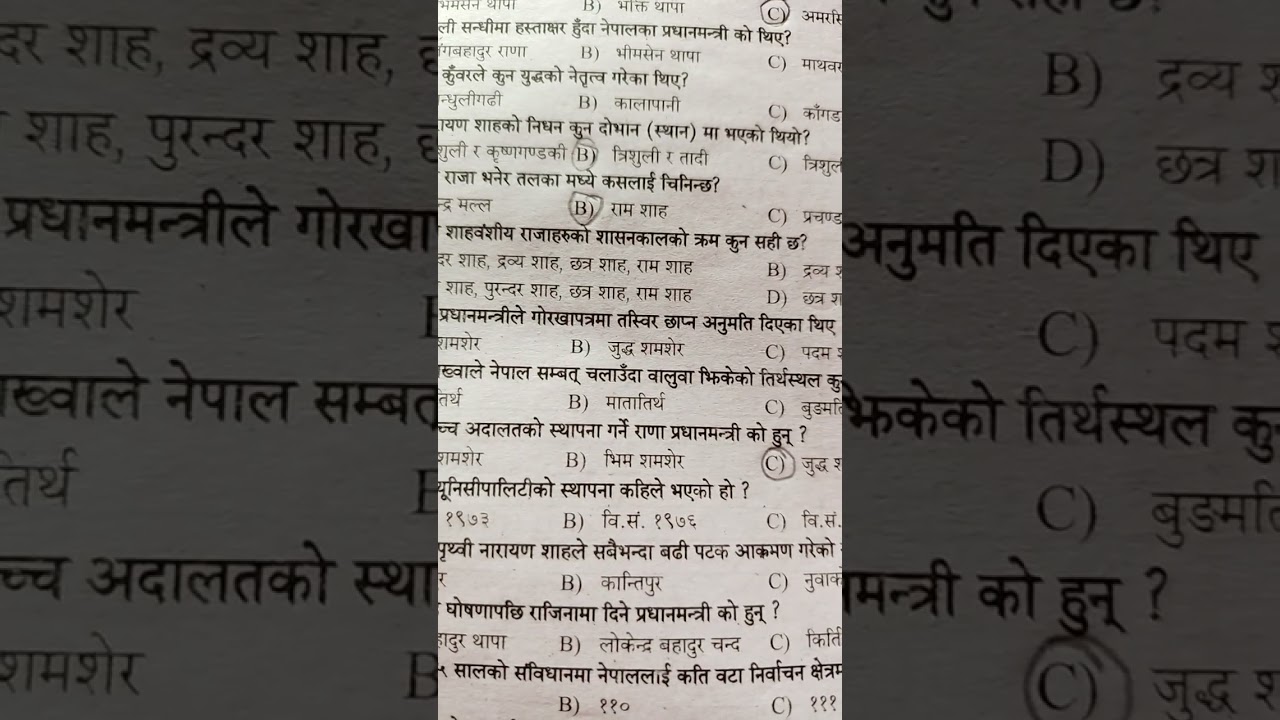 भीमसेन थापा B) भक्ति थापा C) अमरसि
ली सन्धीमा हस्ताक्षर हुँदा नेपालका प्रधानमन्त्री को थिए?
गबहादुर राणा B) भीमसेन थापा C) माथवर
कुँवरले कुन युद्धको नेतृत्व गरेका थिए?
न्धुलीगढी B) कालापानी C) काँगड
रायण शाहको निधन कुन दोभान (स्थान) मा भएको थियो?
शुली र कृष्णगण्डकी B) त्रिशुली र तादी C) त्रिशुल
राजा भनेर तलका मध्ये कसलाई चिनिन्छ?
न्द्र मल्ल B) राम शाह C) प्रचण्ड
शाहवंशीय राजाहरुको शासनकालको क्रम कुन सही छ?
दर शाह, द्रव्य शाह, छत्र शाह, राम शाह B) द्रव्य श
शाह, पुरन्दर शाह, छत्र शाह, राम शाह D) छत्र श
प्रधानमन्त्रीले गोरखापत्रमा तस्विर छाप्न अनुमति दिएका थिए
शमशेर B) जुद्ध शमशेर C) पदम श
ख्वाले नेपाल सम्बत् चलाउँदा वालुवा झिकेको तिर्थस्थल कु
तिर्थ B) मातातिर्थ C) बुङमति
च्च अदालतको स्थापना गर्ने राणा प्रधानमन्त्री को हुन् ?
शमशेर B) भिम शमशेर C) जुद्ध श
यूनिसीपालिटीको स्थापना कहिले भएको हो ?
१९७३ B) वि.सं. १९७६ C) वि.सं.
पृथ्वी नारायण शाहले सबैभन्दा बढी पटक आक्रमण गरेको
र B) कान्तिपुर C) नुवाक
घोषणापछि राजिनामा दिने प्रधानमन्त्री को हुन् ?
हादुर थापा B) लोकेन्द्र बहादुर चन्द C) किर्ति
सालको संविधानमा नेपाललाई कति वटा निर्वाचन क्षेत्रम
B) ११० C) १११